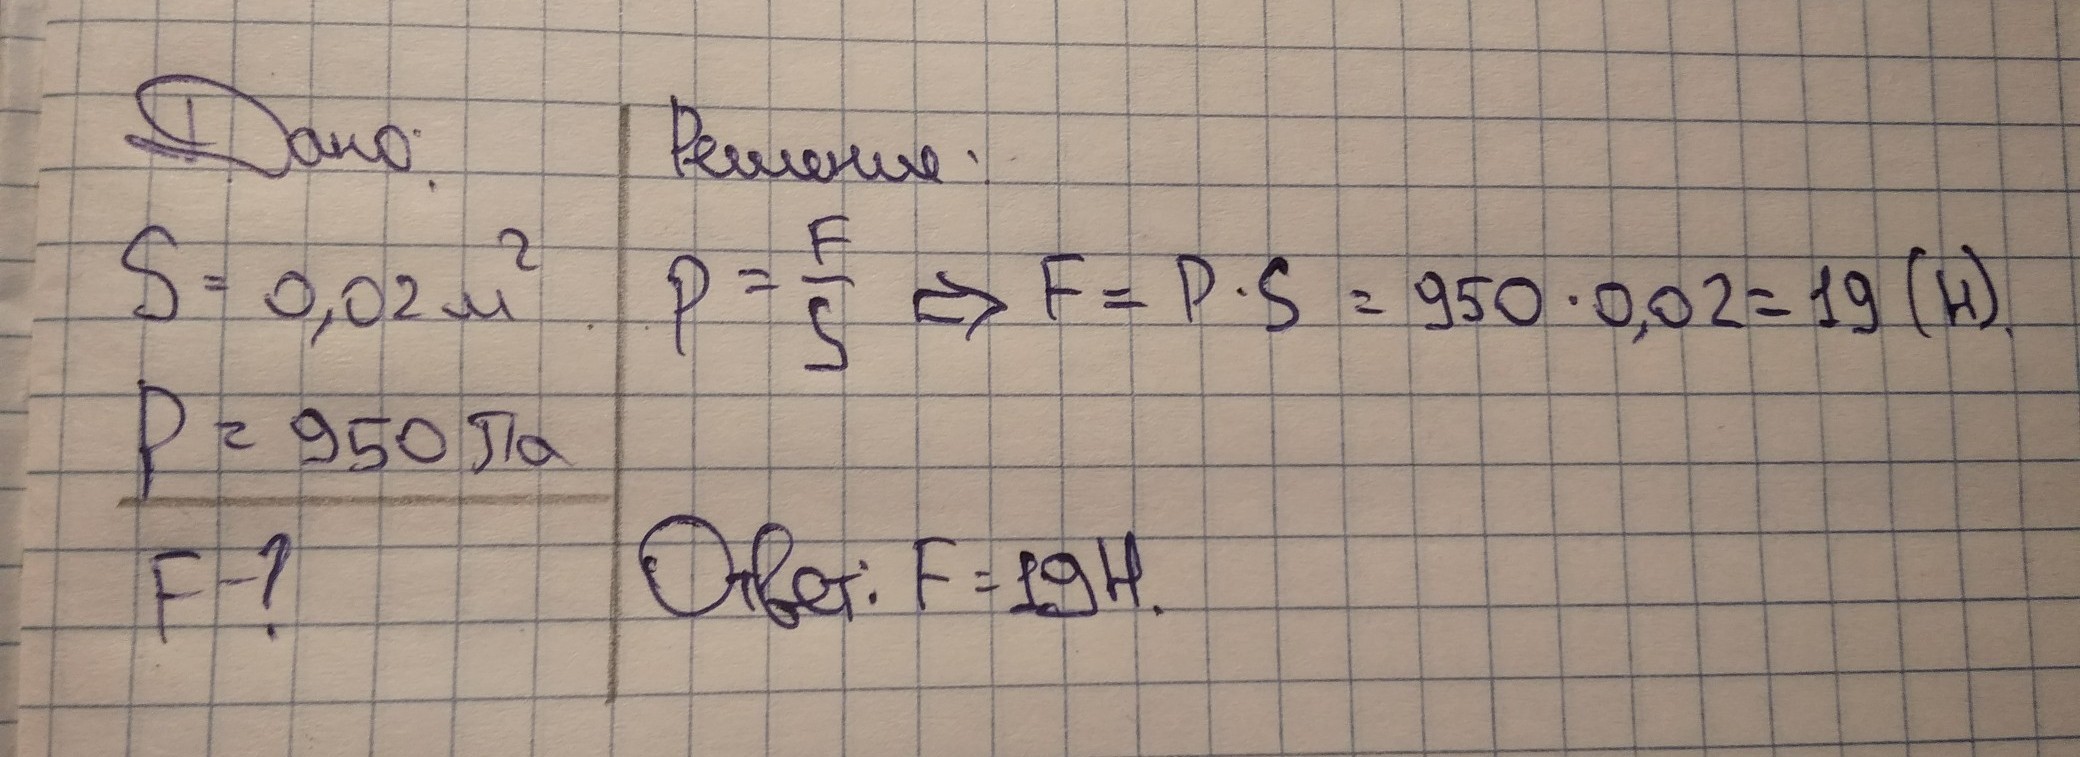 Дано:
S = 0,02 м²
P = 950 Па
F - ?
Решение:
P = F/S ⇒ F = P · S = 950 · 0,02 = 19 (Н).
Ответ: F = 19 Н.